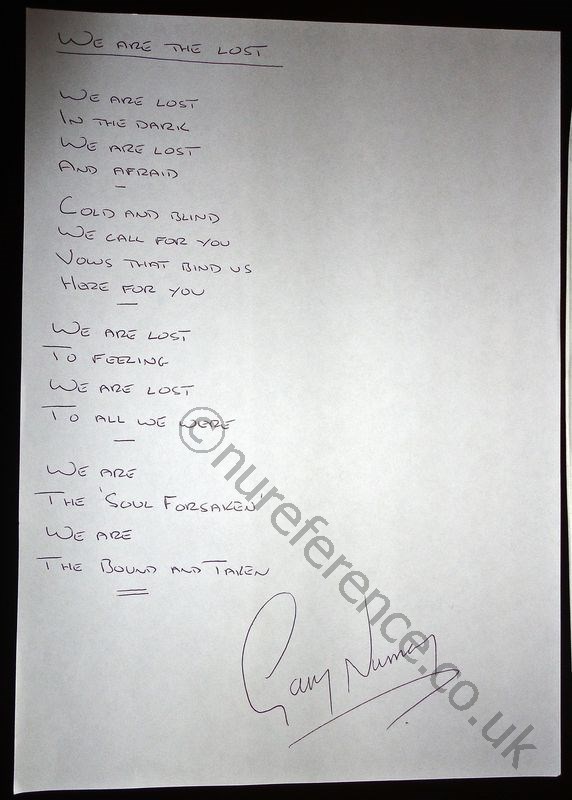 WE ARE THE LOST
WE ARE LOST
IN THE DARK
WE ARE LOST
AND AFRAID
COLD AND BLIND
WE CALL FOR YOU
VOWS THAT BIND US
HERE FOR YOU
WE ARE LOST
TO FEELING
WE ARE LOST
TO ALL WE WERE
WE ARE
THE 'SOUL FORSAKEN'
WE ARE
THE BOUND AND TAKEN
Gary Numan
©nureference.co.uk